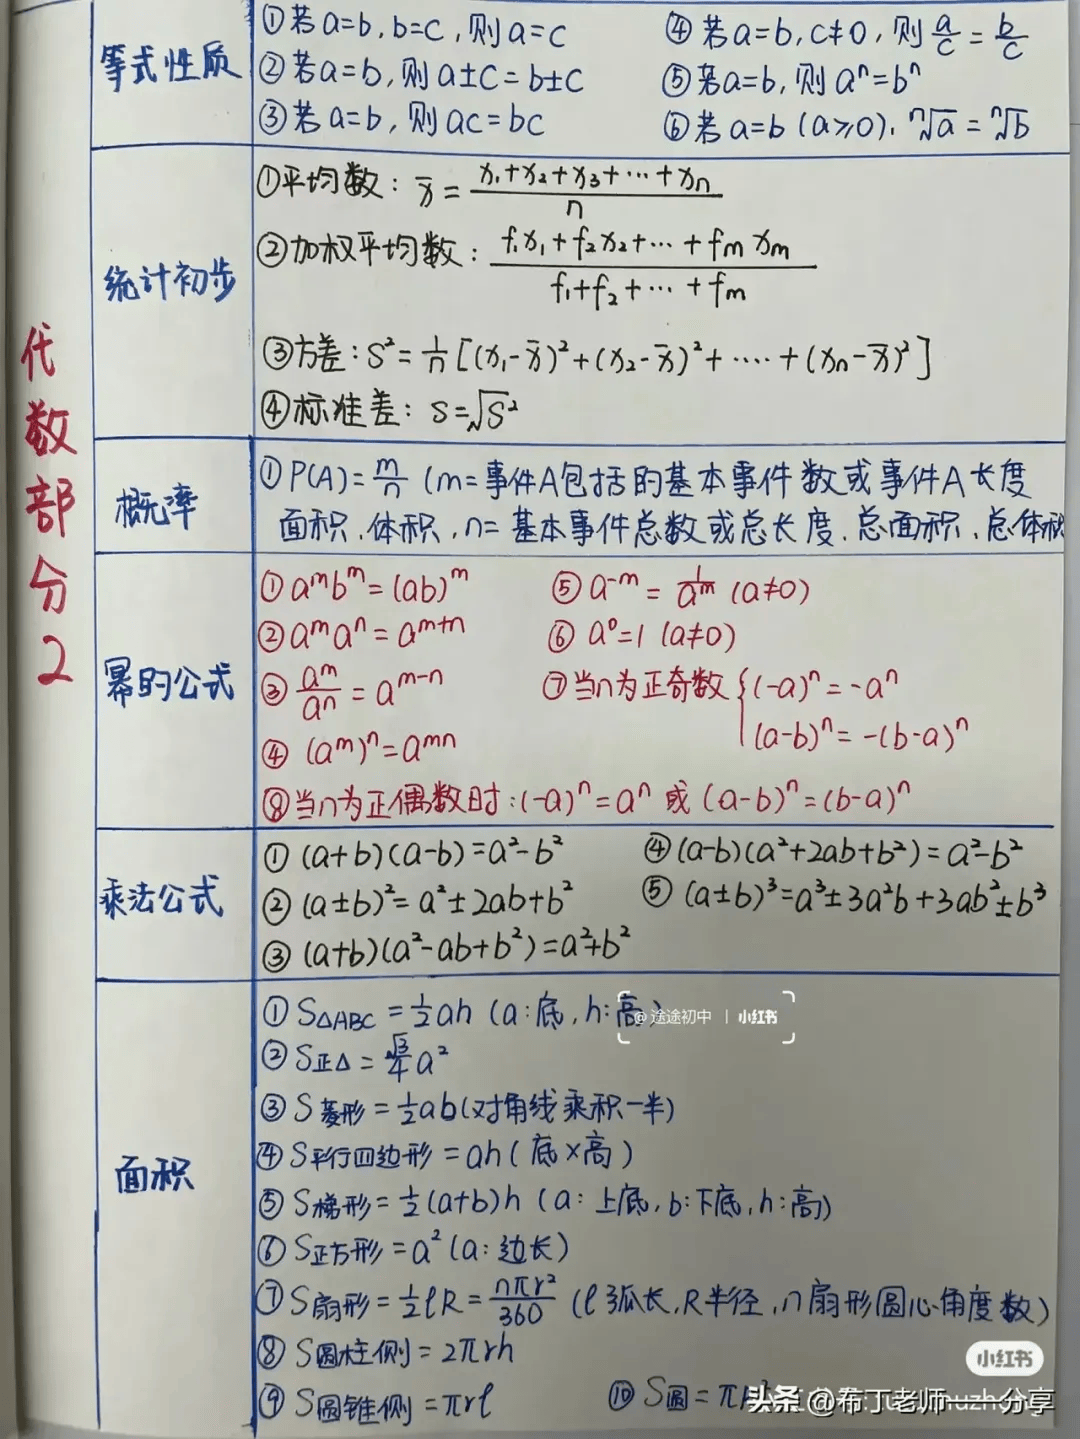 代数部分2
等式性质
①若a=b,b=c,则a=c
②若a=b,则a±c=b±c
③若a=b,则ac=bc
④若a=b,c≠0,则a/c=b/c
⑤若a=b,则aⁿ=bⁿ
⑥若a=b(a≥0).ⁿ√a=ⁿ√b
统计初步
①平均数:x̄=(x₁+x₂+x₃+…+xₙ)/n
②加权平均数:(f₁x₁+f₂x₂+…+fₘxₘ)/(f₁+f₂+…+fₘ)
③方差:S²=1/n[(x₁-x̄)²+(x₂-x̄)²+….+(xₙ-x̄)²]
④标准差:S=√S²
概率
①P(A)=m/n(m=事件A包括的基本事件数或事件A长度
面积.体积,n=基本事件总数或总长度.总面积.总体积
幂的公式
①aᵐbᵐ=(ab)ᵐ
②aᵐaⁿ=aᵐ⁺ⁿ
③aᵐ/aⁿ=aᵐ⁻ⁿ
④(aᵐ)ⁿ=aᵐⁿ
⑤a⁻ᵐ=1/aᵐ(a≠0)
⑥a⁰=1(a≠0)
⑦当n为正奇数{(-a)ⁿ=-aⁿ
(a-b)ⁿ=-(b-a)ⁿ
⑧当n为正偶数时:(-a)ⁿ=aⁿ或(a-b)ⁿ=(b-a)ⁿ
乘法公式
①(a+b)(a-b)=a²-b²
②(a±b)²=a²±2ab+b²
③(a+b)(a²-ab+b²)=a²+b²
④(a-b)(a²+2ab+b²)=a²-b²
⑤(a±b)³=a³±3a²b+3ab²±b³
面积
①S△ABC=½ah(a:底,h:高)
@途途初中 | 小红书
②S正△=√3/4a²
③S菱形=½ab(对角线乘积一半)
④S平行四边形=ah(底×高)
⑤S梯形=½(a+b)h(a:上底,b:下底,h:高)
⑥S正方形=a²(a:边长)
⑦S扇形=½ℓR=nπr²/360(ℓ弧长,R半径,n扇形圆心角度数)
⑧S圆柱侧=2πrh
⑨S圆锥侧=πrℓ
⑩S圆=π
小红书
头条@布丁老师一一分享